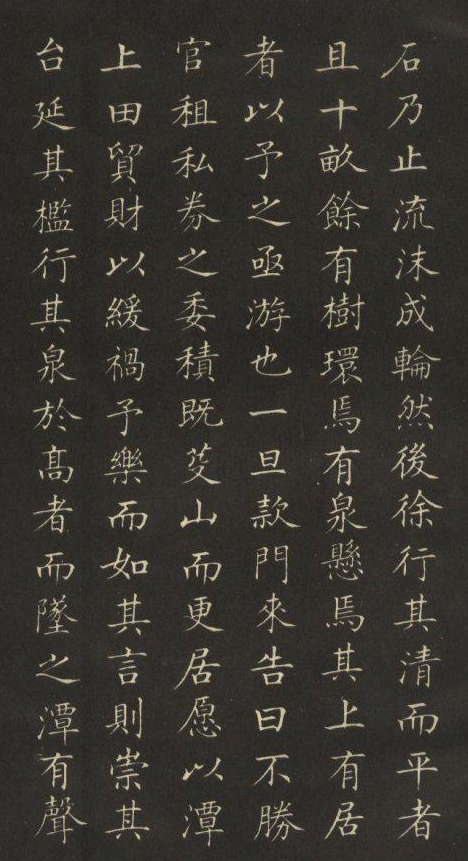 石乃止流沫成輪然後徐行其清而平者
且十畝餘有樹環焉有泉懸焉其上有居
者以予之亟游也一旦款門來告曰不勝
官租私券之委積既芟山而更居愿以潭
上田貿財以緩禍予樂而如其言則崇其
台延其檻行其泉於髙者而墜之潭有聲